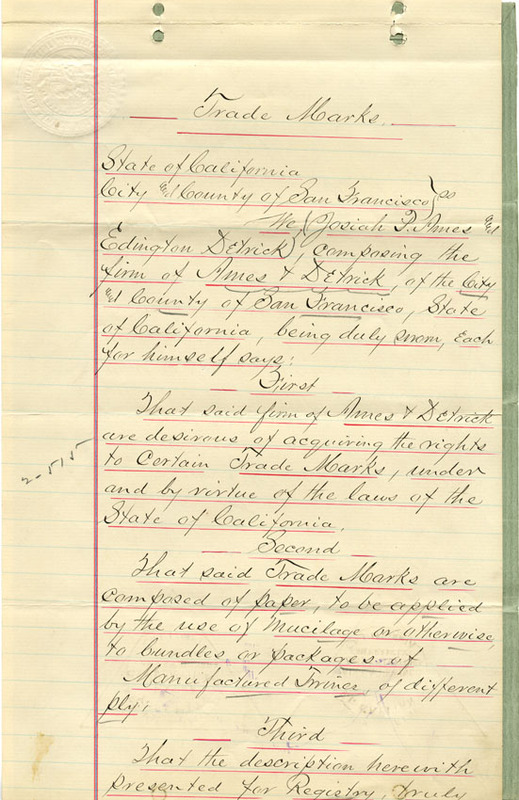 Trade Marks.
State of California
City and County of San Francisco } ss
We, (Josiah P. Ames and
Edington Detrick), composing the
firm of Ames & Detrick, of the City
and County of San Francisco, State
of California, being duly sworn, Each
for himself says:
First
That said firm of Ames & Detrick
are desirous of acquiring the rights
to Certain Trade Marks, under
and by virtue of the laws of the
State of California.
2-515
Second
That said Trade Marks are
composed of paper, to be applied
by the use of Mucilage or otherwise,
to bundles or packages of
Manufactured Twines, of different
ply.
Third
That the description herewith
presented for Registry, truly